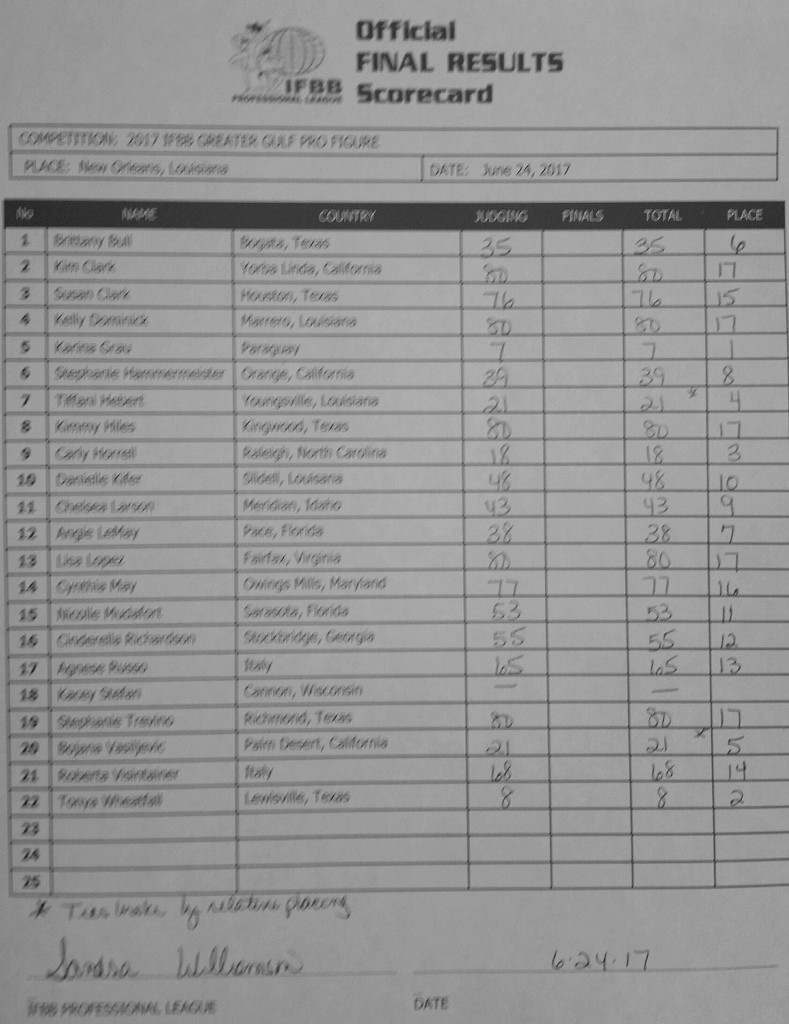 Official
FINAL RESULTS
Scorecard
IFBB
PROFESSIONAL LEAGUE
COMPETITION: 2017 IFBB GREATER GULF PRO FIGURE
PLACE: New Orleans, Louisiana DATE: June 24, 2017
No NAME COUNTRY JUDGING FINALS TOTAL PLACE
1 Brittany Bull Bogata, Texas 35 35 6
2 Kim Clark Yorba Linda, California 80 80 17
3 Susan Clark Houston, Texas 76 76 15
4 Kelly Dominick Marrero, Louisiana 80 80 17
5 Karina Grau Paraguay 7 7 1
6 Stephanie Hammermeister Orange, California 39 39 8
7 Tiffani Hebert Youngsville, Louisiana 21 21 * 4
8 Kimmy Hiles Kingwood, Texas 80 80 17
9 Carly Horrell Raleigh, North Carolina 18 18 3
10 Danielle Kifer Slidell, Louisana 48 48 10
11 Chelsea Larson Meridian, Idaho 43 43 9
12 Angie LeMay Pace, Florida 38 38 7
13 Lisa Lopez Fairfax, Virginia 80 80 17
14 Cynthia May Owings Mills, Maryland 77 77 16
15 Nicolle Mudafort Sarasota, Florida 53 53 11
16 Cinderella Richardson Stockbridge, Georgia 55 55 12
17 Agnese Russo Italy 65 65 13
18 Kacey Stefan Cannon, Wisconsin — —
19 Stephanie Trevino Richmond, Texas 80 80 17
20 Bojana Vasiljevic Palm Desert, California 21 21 * 5
21 Roberta Visintainer Italy 68 68 14
22 Tonya Wheatfall Lewisville, Texas 8 8 2
23
24
25
* Ties broke by relative placing
Sandra Williamson 6·24·17
IFBB PROFESSIONAL LEAGUE DATE